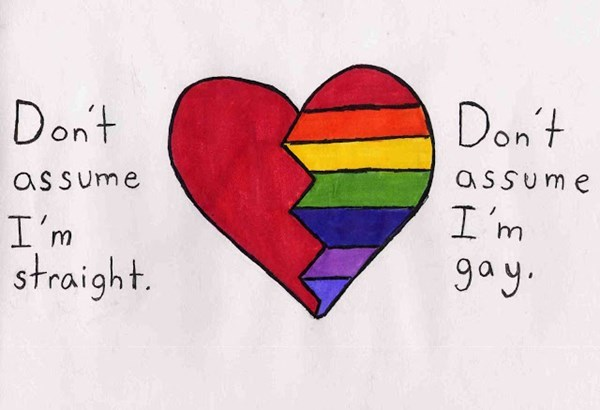 Don't
assume
I'm
straight.
Don't
assume
I'm
gay.